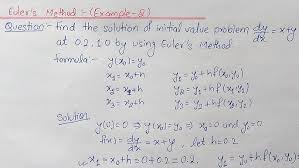 Euler's Method :- (Example-2)
Question :- Find the solution of initial value problem dy/dx = x+y
at 0.2, 1.0 by using Euler's Method
formula :- y(x₀) = y₀
x₁ = x₀+h y₁ = y₀ + hf(x₀,y₀)
x₂ = x₁+h y₂ = y₁ + hf(x₁,y₁)
x₃ = x₂+h y₃ = y₂ + hf(x₂,y₂)
Solution
y(0)=0 ⇒ y(x₀) = y₀ ⇒ x₀=0 and y₀=0
f(x,y) = dy/dx = x+y, let h=0.2
x₁ = x₀+h = 0+0.2 = 0.2, y₁ = y₀ + hf(x₀,y₀)